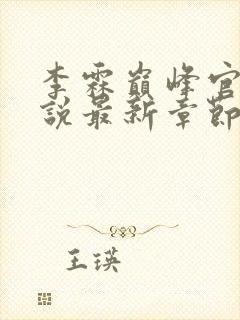 李霖巔峰官
說最新章節
王瑛